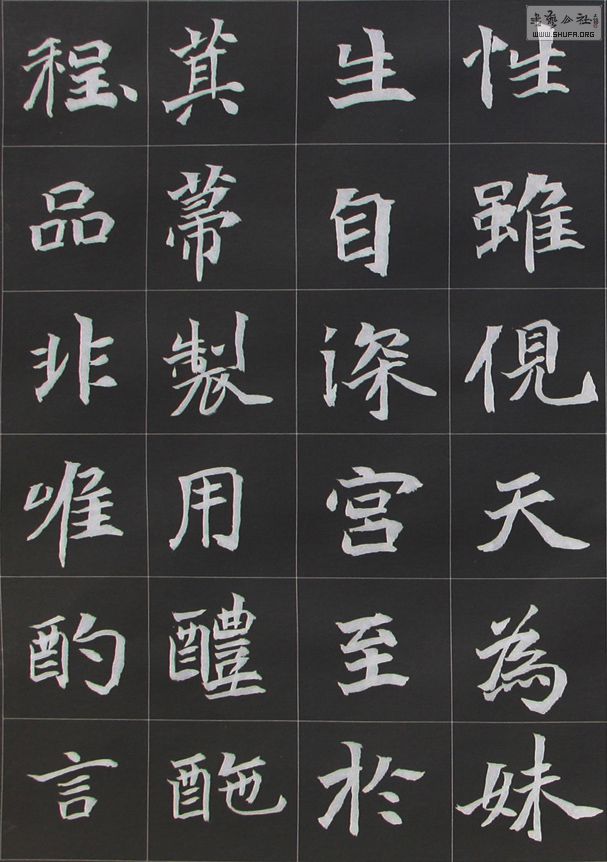 性雖俔天為妹
生自深宮至於
萁菷製用醴酏
程品非唯酌言
書藝公社
WWW.SHUFA.ORG